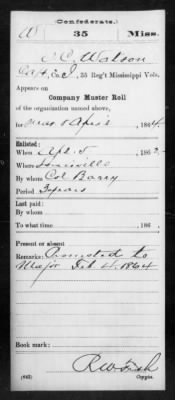 (Confederate.)
W 35 Miss.
T. C. Watson
Capt, Co. I, 35 Reg't Mississippi Vols.
Appears on
Company Muster Roll
of the organization named above,
for Mar & April, 1864
Enlisted:
When Apl. 5, 1862.
Where Louisville
By whom Col Barry
Period 3 years
Last paid:
By whom
To what time , 186 .
Present or absent
Remarks: Promoted to
Major Feb 4. 1864
Book mark:
R W Fish
(642) Copyist.